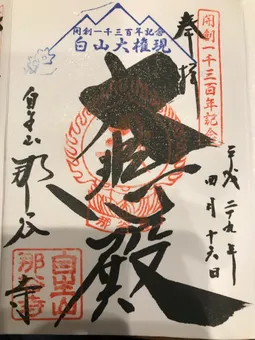 開創一千三百年記念
白山大権現
開創一千三百年記念
奉拝
平成二十九年
四月十六日
大悲殿
自生山
那谷寺
自生山
那谷寺